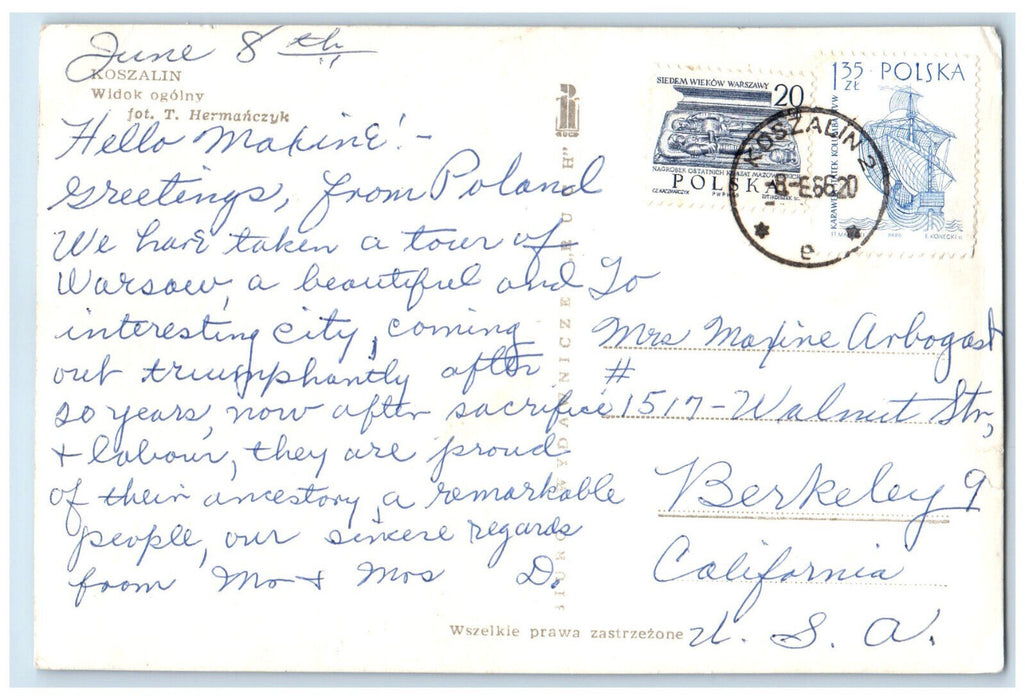 June 8th
KOSZALIN
Widok ogólny
fot. T. Hermańczyk
Hello Maxine! -
Greetings, from Poland
We have taken a tour of
Warsaw, a beautiful and
interesting city, coming
out triumphantly after
20 years, now after sacrifice
+ labour, they are proud
of their ancestory, a remarkable
people, our sincere regards
from Mr + Mrs D.
BIURO WYDAWNICZE "RUCH"
SIEDEM WIEKÓW WARSZAWY
20
NAGROBEK OSTATNICH KSIĄŻĄT MAZOW
POLSKA
1,35 ZŁ POLSKA
KARAWELA STATEK KOLUMBA XV W
KOSZALIN 2
-8-6.66.20
e
To
Mrs Maxine Arbogast
# 1517 - Walnut Str,
Berkeley 9
California
U. S. A.
Wszelkie prawa zastrzeżone